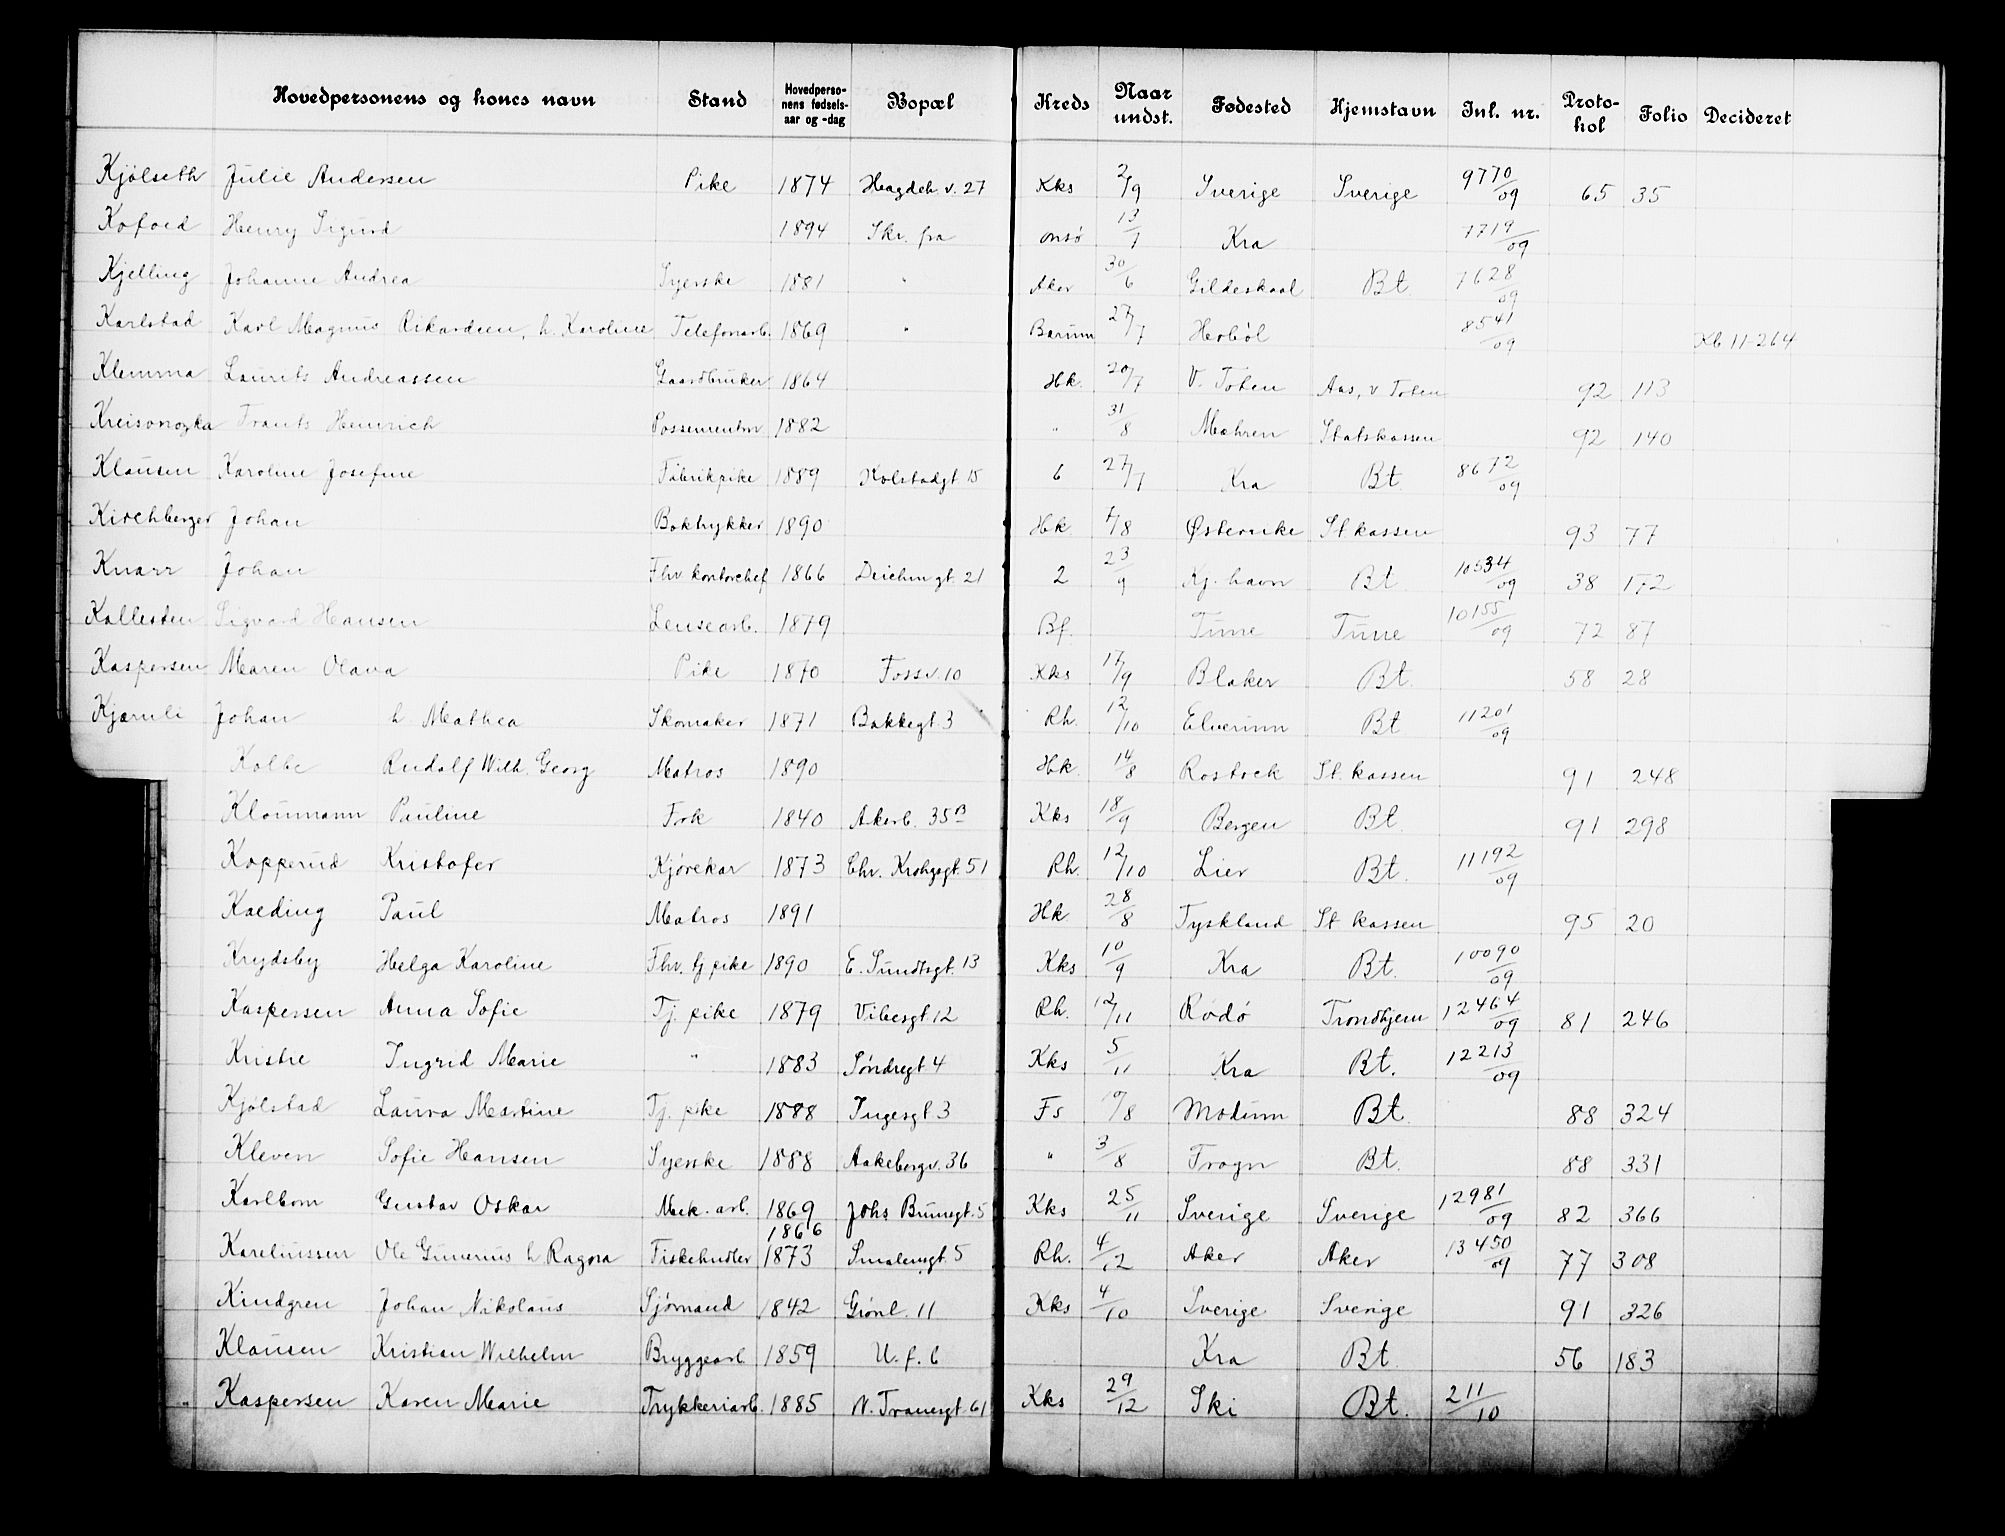 Hovedpersonens og kones navn Stand Hovedperso-nens fødsels-aar og -dag Bopæl Kreds Naar undst. Fødested Hjemstavn Inl. nr. Proto-kol Folio Decideret
Kjölseth Julie Andersen Pike 1874 Hagdeh v. 27 Kks 2/9 Sverige Sverige 9770/09 65 35
Kofoed Henry Sigurd 1894 Skr. fra onsö 13/7 Kra 7719/09
Kjelling Johanne Andrea Syerske 1881 " Aker 30/6 Gildeskaal Bt 7628/09
Karlstad Karl Magnus Rikardsen, h. Karoline Telefonarb. 1869 " Bærum 27/7 Hobøl 8541/09 Kb 11-264
Klemma Laurits Andreassen Gaardbruker 1864 Hk. 20/7 V. Toten Aas, v Toten 92 113
Trants Heinrich Possementm 1882 " 31/8 Mähren Statskassen 92 140
Klausen Karoline Josefine Fabrikpike 1889 Kolstadgt 15 6 27/7 Kra Bt. 8672/09
Kirchberger Johan Boktrykker 1890 Hk. /8 Østerrike St kassen 93 77
Knarr Johan Fhv kontorchef 1866 Deichm gt. 21 2 23/9 Kj. havn Bt. 10534/09 38 172
Kallesten Sigvard Hansen Lensearb. 1879 Bf. Tune Tune 10155/09 72 87
Kaspersen Maren Olava Pike 1870 Fossv. 10 Kks 17/9 Blaker Bt. 58 28
Kjærnli Johan h. Mathea Skomaker 1871 Bakkegt. 3 Rh. 12/10 Elverum Bt 11201/09
Kolbe Rudolf Wilh. Georg Matros 1890 Hk. 14/8 Rostock St. kassen 91 248
Kloumann Pauline Frk 1840 Akerb. 35 B Kks 18/9 Bergen Bt. 91 298
Kopperud Kristofer Kjørekar 1873 Chr. Krohgsgt. 51 Rh. 12/10 Lier Bt. 11192/09
Kaeding Paul Matros 1891 Hk 28/8 Tyskland St kassen 95 20
Krydsby Helga Karoline Fhv. tj pike 1890 E. Sundtsgt. 13 Kks 10/9 Kra Bt. 10090/09
Kaspersen Anna Sofie Tj. pike 1879 Vibesgt 12 Rh. 12/11 Rödö Trondhjem 12464/09 81 246
Kristre Ingrid Marie " 1883 Söndregt 4 Kks 5/11 Kra Bt. 12213/09
Kjölstad Laura Martine Tj. pike 1888 Ingesgt 3 Fs /8 Modum Bt. 88 324
Kleven Sofie Hansen Syerske 1888 Aakebergv. 36 " 3/8 Frogn Bt. 88 331
Karlbom Gustav Oskar Mek. arb. 1869 Johs Brunsgt. 5 Kks 25/11 Sverige Sverige 12981/09 82 366
Kareliussen Ole Gunerius h Ragna Fiskehndler 1866 1873 Smalensgt. 5 Rh. 4/12 Aker Aker 13450/09 77 308
Kindgren Johan Nikolaus Sjömand 1842 Grönl. 11 Kks 4/10 Sverige Sverige 91 326
Klausen Kristian Wilhelm Bryggearb. 1859 U. f. b Kra Bt. 56 183
" Kaspersen Karen Marie Trykkeriarb. 1885 N. Tranesgt. 61 Kks 29/12 Ski Bt. 211/10